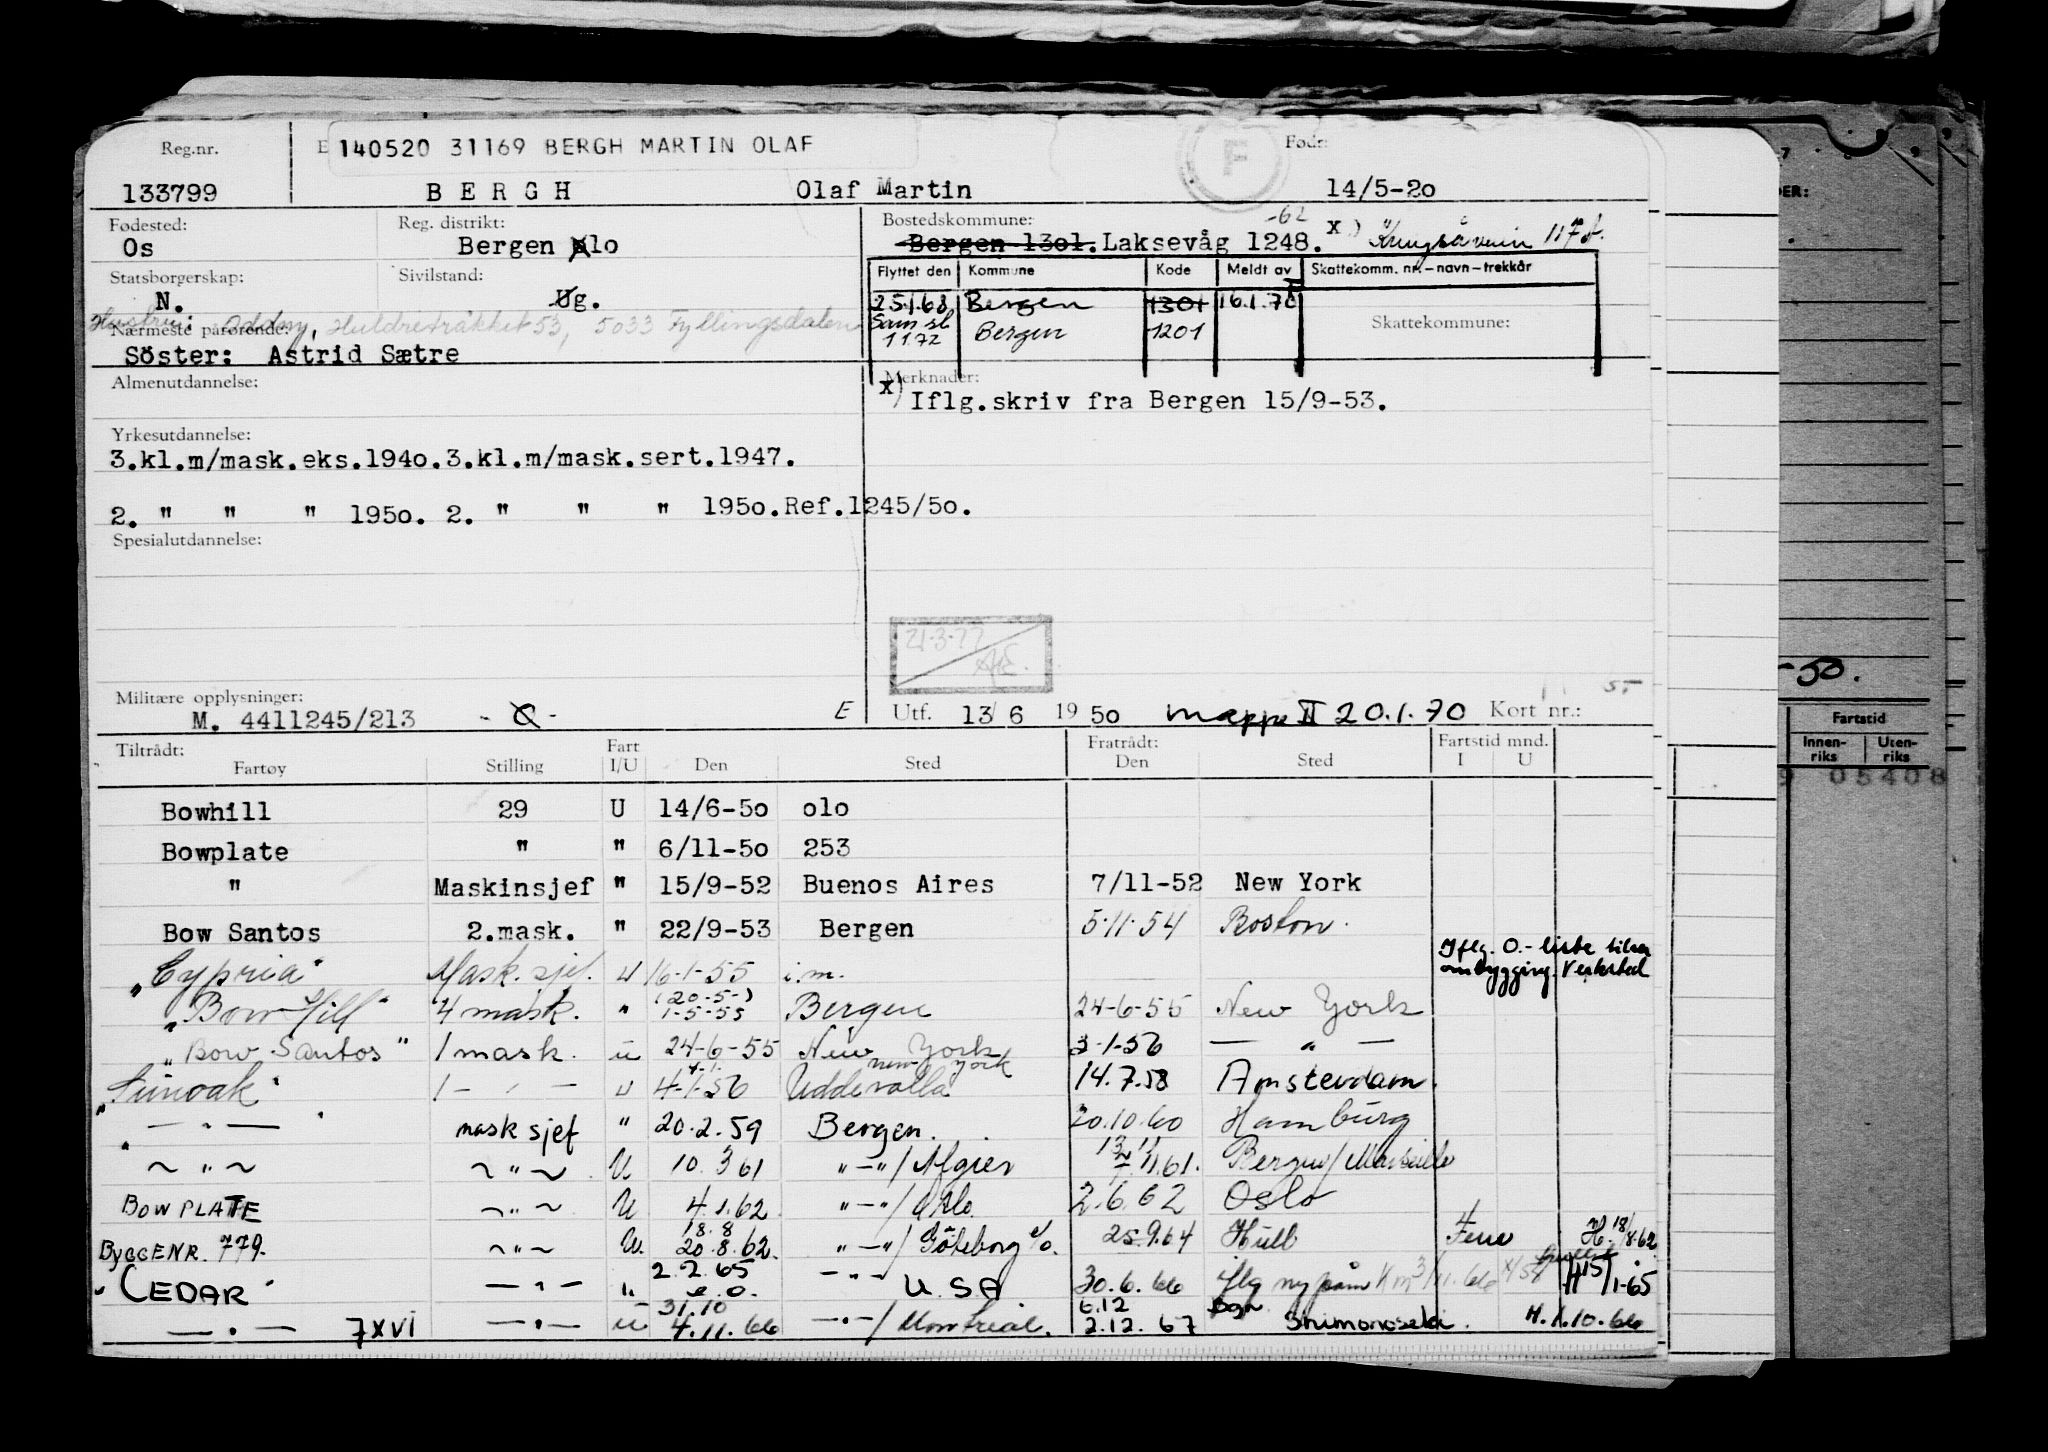 Reg.nr.
140520 31169 BERGH MARTIN OLAF
F
Født:
133799 BERGH Olaf Martin 14/5-2o
Fødested: Reg. distrikt: Bostedskommune: -62
Os Bergen olo Bergen 13o1. Laksevåg 1248. x) 117A.
Statsborgerskap: Sivilstand:
Flyttet den Kommune Kode Meldt av Skattekomm. nr.–navn–trekkår
N. Ug.
25.1.68 Bergen 1301 16.1.70
Hustru: Oddny, Huldretråkket 53, 5033 Fyllingsdalen
Nærmeste pårørende:
Sam sl 1172 Bergen 1201 Skattekommune:
Söster: Astrid Sætre
Almenutdannelse: Merknader:
x) Iflg.skriv fra Bergen 15/9-53.
Yrkesutdannelse:
3.kl.m/mask.eks.194o.3.kl.m/mask.sert.1947.
2. " " " 195o. 2. " " " 195o.Ref.1245/5o.
Spesialutdannelse:
21-3-77
Militære opplysninger:
M. 4411245/213 E Utf. 13/6 19 50 mappe II 20.1.70 Kort nr.:
Tiltrådt: Fart Fratrådt: Fartstid mnd.
Fartøy Stilling I/U Den Sted Den Sted I U
Bowhill 29 U 14/6-5o olo
Bowplate " " 6/11-5o 253
" Maskinsjef " 15/9-52 Buenos Aires 7/11-52 New York
Bow Santos 2.mask. " 22/9-53 Bergen 5-11-54 Boston.
Iflg. O.-liste
ombygging. Verksted
"Cypria" Mask.sjef. U 16-1-55 i.m.
"Bow Hill" 4 mask. " (20-5-) 1-5-55 Bergen 24-6-55 New York
"Bow Santos" 1 mask. u 24-6-55 New York 3-1-56 — " —
4-1. New York
"Sunoak" 1 — " — U 4-1-56 Uddevalla 14.7.58 Amsterdam.
— " — mask sjef " 20.2.59 Bergen. 20.10.60 Hamburg
~ " ~ ~ " ~ U 10.3 61 " — " / Algier 11.61. Bergen / Marseille
BOW PLATE ~ " ~ U 4.1.62 " — " / Oslo 2.6.62 Oslo
18.8
BYGGENR. 779. ~ " ~ U. 20.8.62. " — " / Göteborg 25.9.64 Hull 4 Ferie H. 18/8.62
2.2.65
"CEDAR" — " — " e.o. — " — U.S.A 30.6.66 H 15/1-65
31.10 6.12 Bgn
— " — 7XVI — " — u 4.11.66 — " — / Montreal. 2.12.67 Shimonoseki. H.1.10.66
DER:
-50.
Fartstid
Innen-riks Uten-riks
9 05408